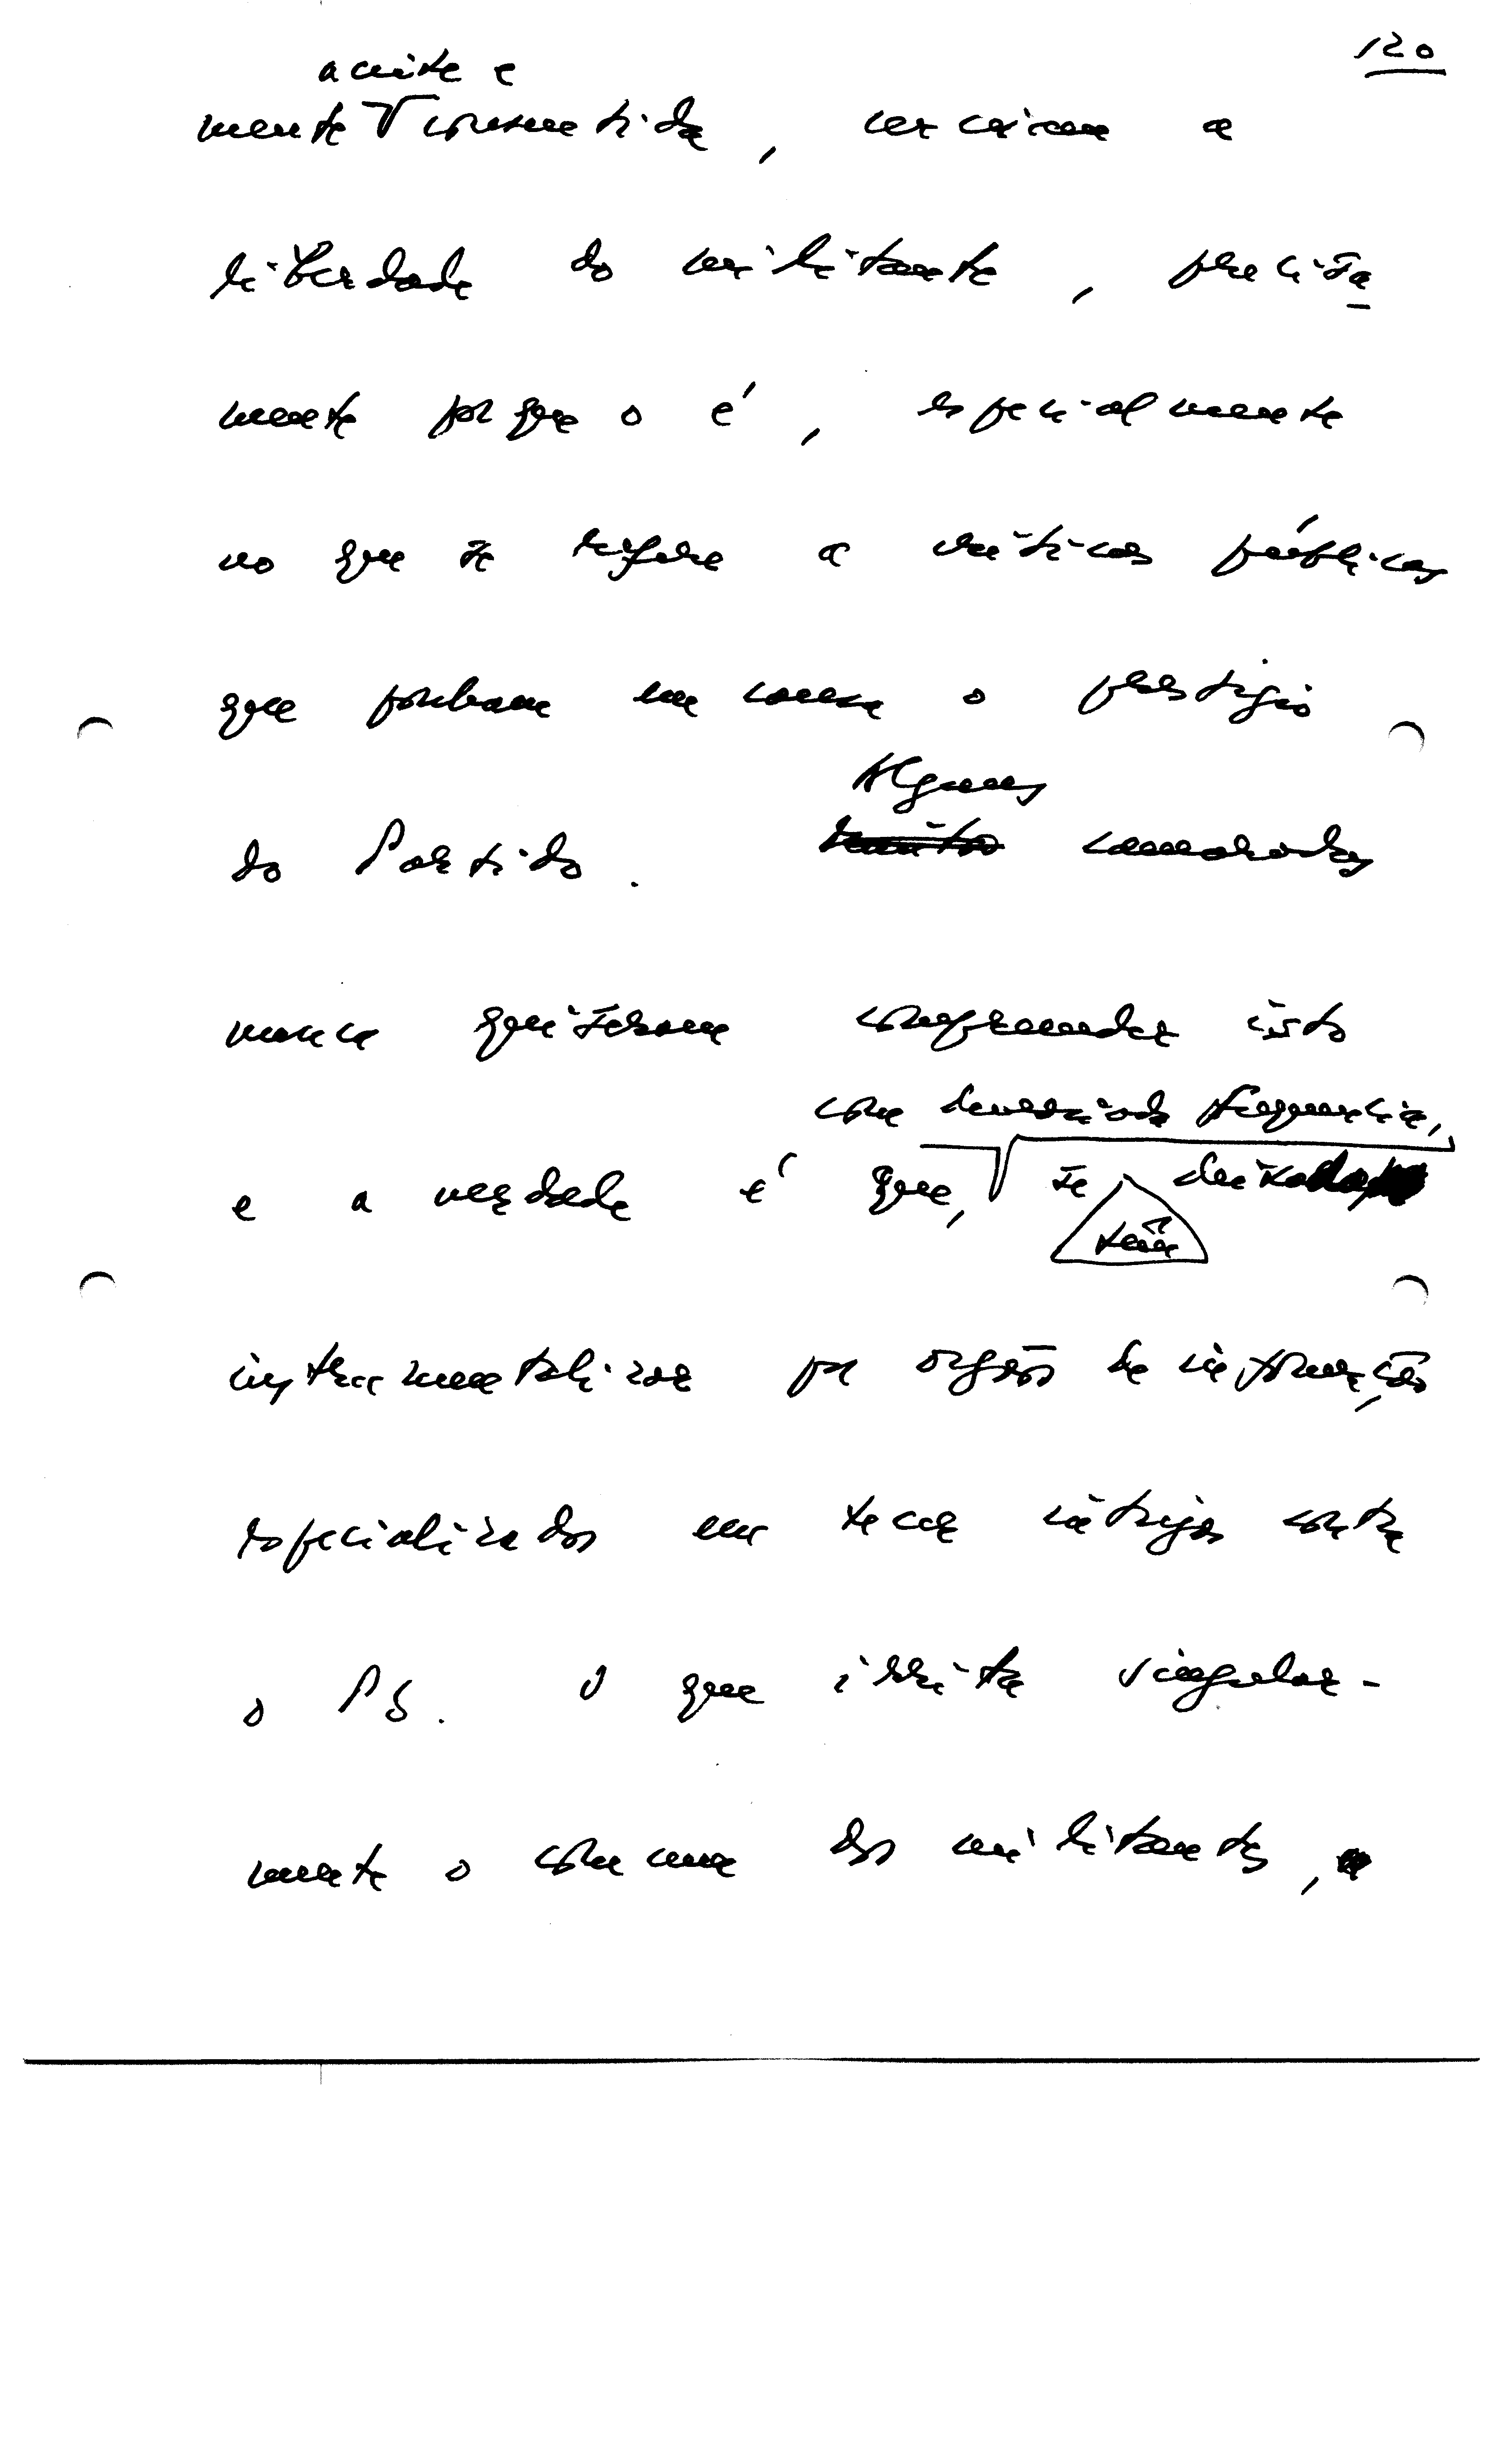 120
aceite e
mente consentida, cerceiam a
liberdade do militante, precisa
mente porque o é, especialmente
no que se refere a críticas públicas
que ponham em causa o prestígio
do Partido. Alguns camaradas
nunca quiseram compreender isto
com demasiada frequência,
e a verdade é que, se deixado
têm
instrumentalizar por orgãos de informação
especializados em tecer intrigas contra
o PS. O que irrita singular-
mente o comum dos militantes,